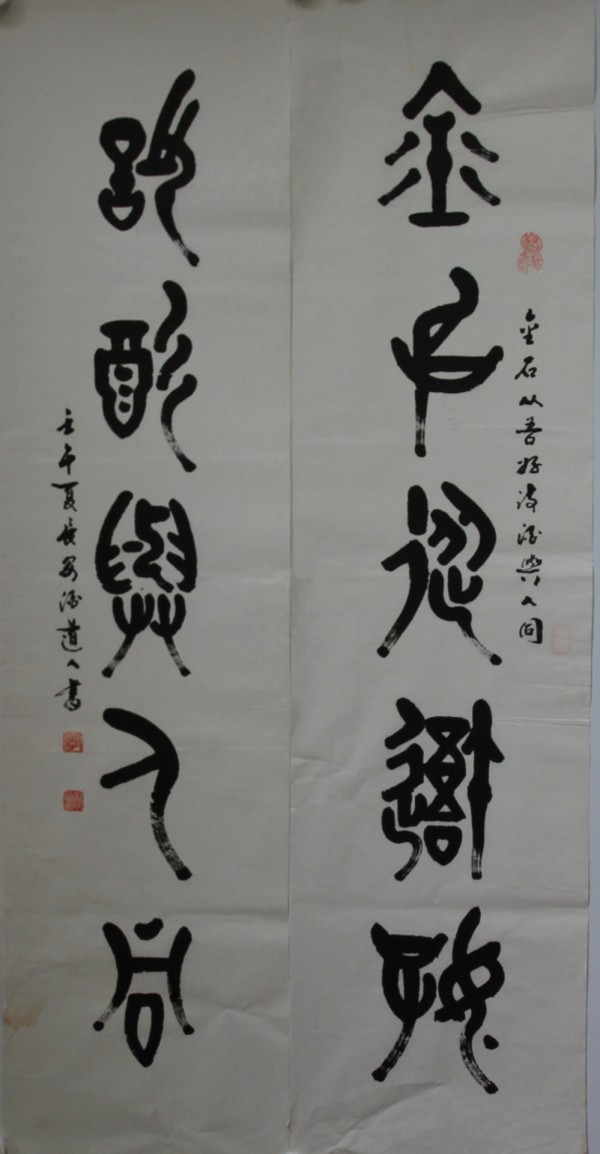 金石从吾好诗酒與人同
金石從吾好
詩酒與人同
壬午夏長安酒道人書